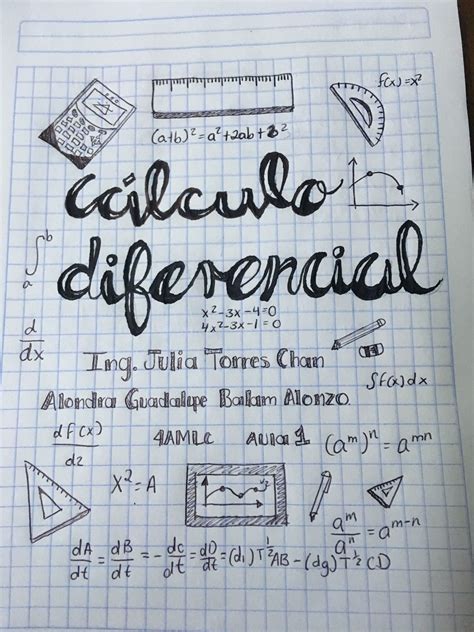 f(x)=x²
(a+b)²=a²+2ab+b²
cálculo
∫ₐᵇ
diferencial
x²-3x-4=0
4x²-3x-1=0
d/dx
Ing. Julia Torres Chan
∫f(x)dx
Alondra Guadalupe Balam Alonzo
df(x)/dz
4AMLC Aula 1
(aᵐ)ⁿ=aᵐⁿ
x²=A
aᵐ/aⁿ=aᵐ⁻ⁿ
dA/dt=dB/dt=-dc/dt=dD/dt=(d₁)T^½AB-(dg)T^½CD